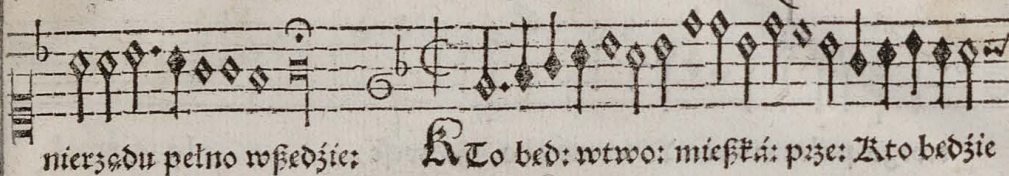 nierządu pełno wßędźie: KTo będ: wtwo: mießká: prze: Kto będźie